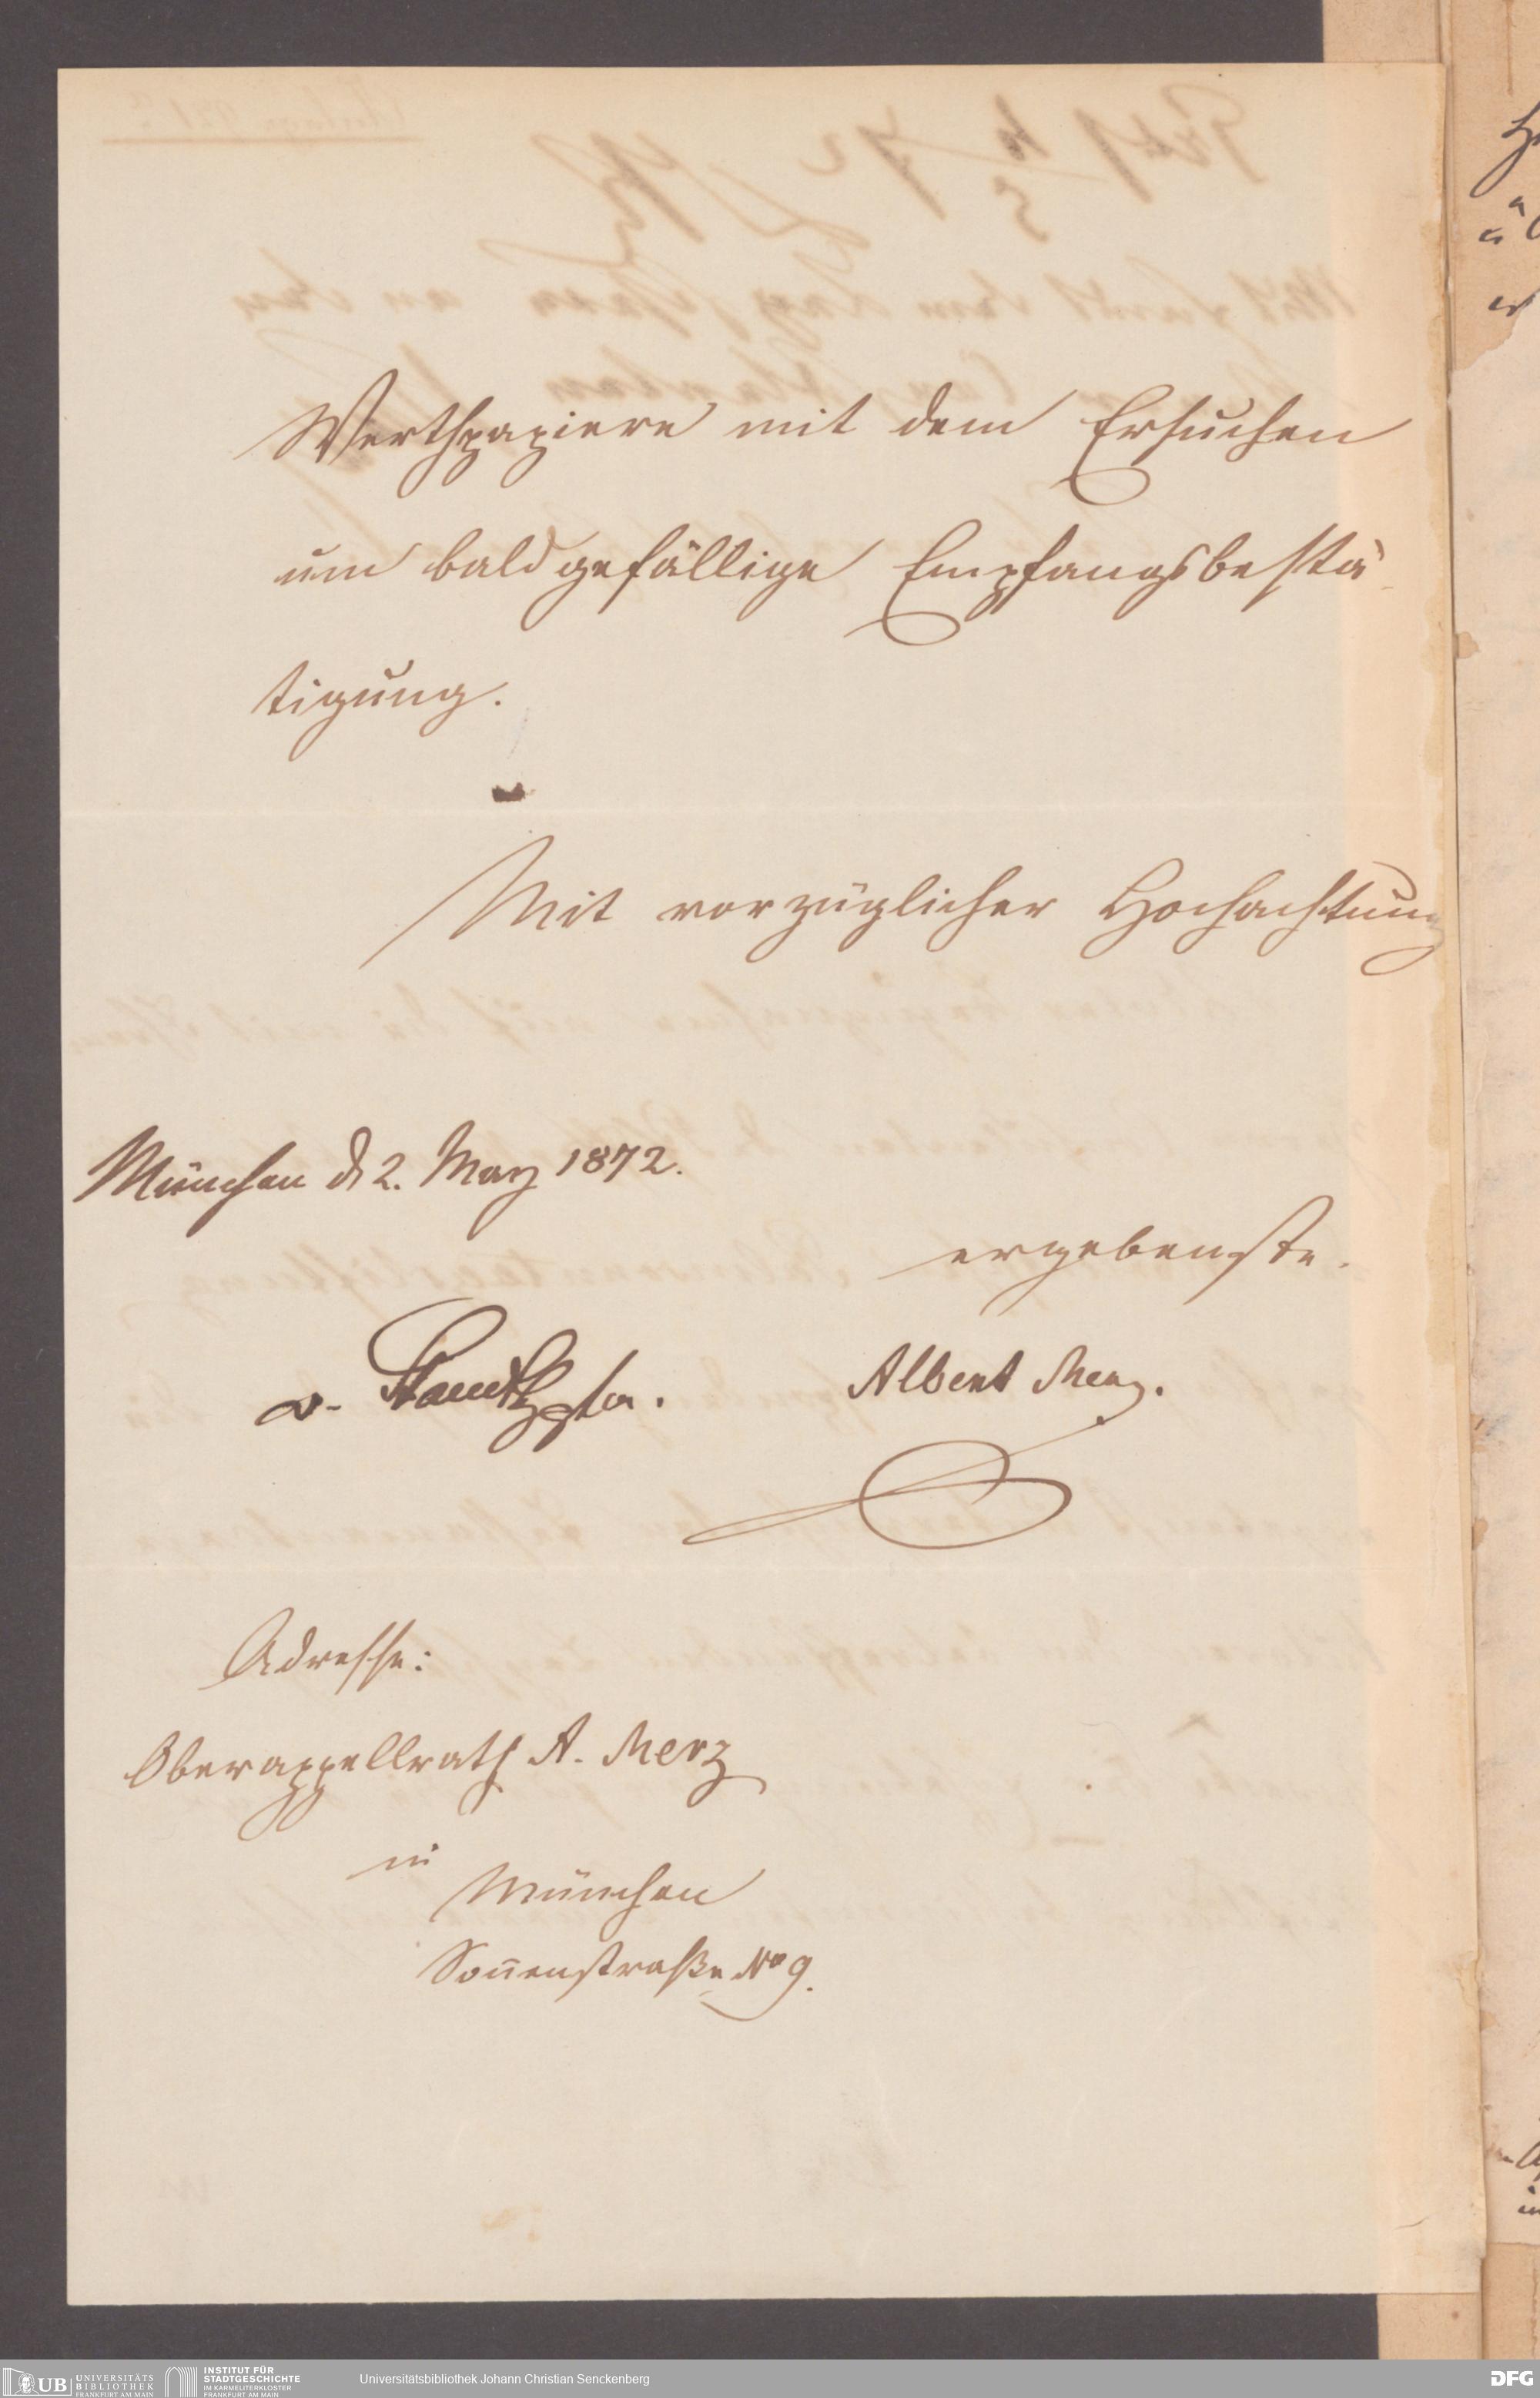 Werthpapiere mit dem Ersuchen
um baldgefällige Empfangsbestä-
tigung.
Mit vorzüglicher Hochachtung
München d 2. May 1872.
ergebenste.
v.
Albert Merz.
Adresse:
Oberappellrath A. Merz
in
München
Soñenstraße No 9.
UB UNIVERSITÄTS
BIBLIOTHEK
FRANKFURT AM MAIN
INSTITUT FÜR
STADTGESCHICHTE
IM KARMELITERKLOSTER
FRANKFURT AM MAIN
Universitätsbibliothek Johann Christian Senckenberg
DFG